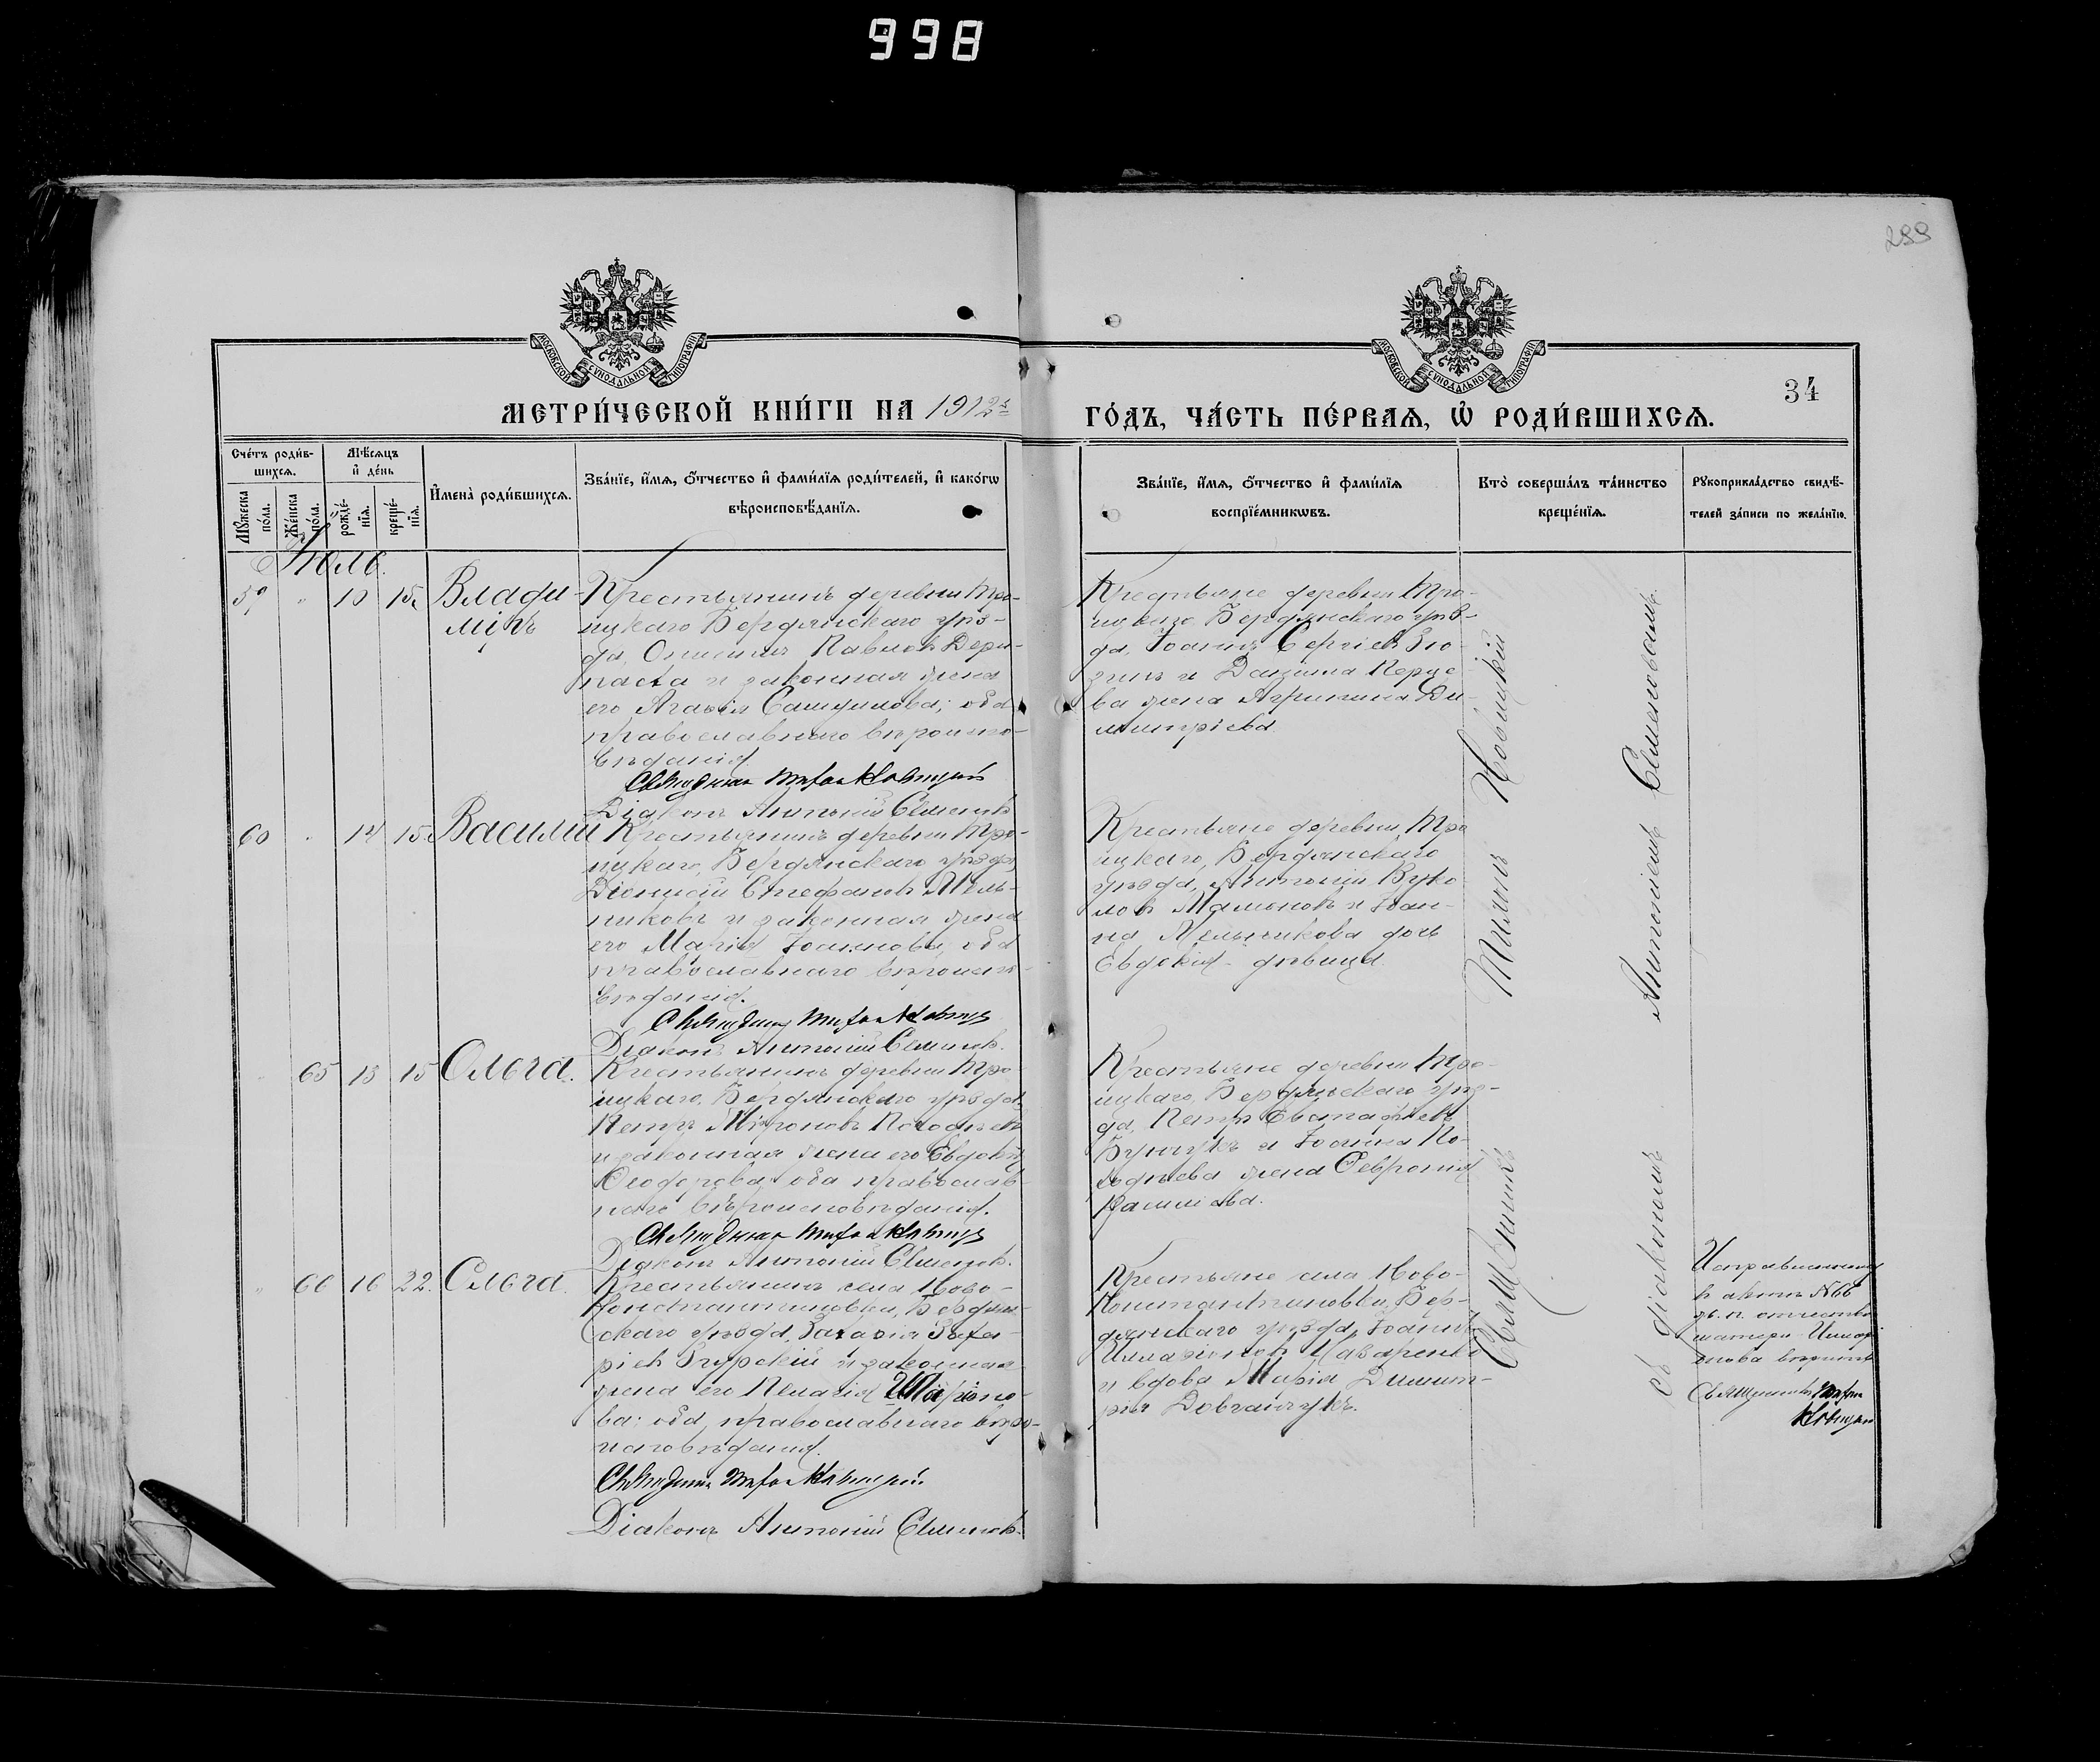 998
299
МОСКОВСКОЙ СѴНОДАЛЬНОЙ ТИПОГРАФІИ
МОСКОВСКОЙ СѴНОДАЛЬНОЙ ТИПОГРАФІИ
34
МЕТРИ́ЧЕСКОЙ КНИ́ГИ НА 1912 г.
ГО́ДЪ, ЧА́СТЬ ПЕ́РВАѦ, Ѡ҆ РОДИ́ВШИХСѦ.
Сче́тъ роди́в-
шихсѧ.
Мꙋ́жеска по́ла.
Же́нска по́ла.
Мѣ́сѧцъ
и҆ де́нь
рожде́-
нїѧ.
креще́-
нїѧ.
И҆мена̀ роди́вшихсѧ.
Зва́нїе, и҆́мѧ, ѻ҆́тчество и҆ фами́лїѧ роди́телей, и҆ како́гѡ
вѣроисповѣ́данїѧ.
Зва́нїе, и҆́мѧ, ѻ҆́тчество и҆ фами́лїѧ
воспрїе́мникѡвъ.
Кто̀ соверша́лъ та́инство
креще́нїѧ.
Рꙋкоприкла́дство свидѣ́-
телей за́писи по жела́нїю.
Іюль.
59 " 10 15. Влади-
міръ
Крестьянинъ деревни Тро-
ицкаго Бердянскаго уѣз-
да, Павловъ Дери-
паска и законная жена
его Агаѳія Самуилова; оба
православнаго вѣроиспо-
вѣданія.
Священникъ Тихонъ Новицкій
Діаконъ Антоній Семеновъ
Крестьяне деревни Тро-
ицкаго Бердянскаго уѣз-
да, Іоаннъ Сергіевъ
и Даніила
ва жена Ди-
митріева.
60 " 14 15. Василій
Крестьянинъ деревни Тро-
ицкаго, Бердянскаго уѣзда,
Діонисій Стефановъ Мель-
никовъ и законная жена
его Марія Іоаннова, оба
православнаго вѣроиспо-
вѣданія.
Священникъ Тихонъ Новицкій
Діаконъ Антоній Семеновъ.
Крестьяне деревни Тро
ицкаго, Бердянскаго
уѣзда, Антоній Вуко
ловъ Мамоновъ и Іоан-
на Мельникова дочь
Евдокія - дѣвица.
" 65 13 15 Ольга.
Крестьянинъ деревни Тро-
ицкаго, Бердянскаго уѣзда,
Петръ Мѵроновъ
и законная жена его Евдокія
Ѳеодорова, оба православ-
наго вѣроисповѣданія.
Священникъ Тихонъ Новицкій
Діаконъ Антоній Семеновъ.
Крестьяне деревни Тро-
ицкаго, Бердянскаго уѣз-
да, Петръ Евстафіевъ
Бунчукъ и Іоанна
жена Ѳевронія
" 66 16 22. Ольга.
Крестьянинъ села Ново-
Константиновки, Бердян-
скаго уѣзда, Захарія Заха-
ріевъ Згурскій и законная
жена его Пелагія
ва: оба православнаго вѣро-
исповѣданія.
Священникъ Тихонъ Новицкій.
Діаконъ Антоній Семеновъ.
Крестьяне села Ново-
Константиновки, Бер-
дянскаго уѣзда, Іоаннъ
Илларіоновъ Назаренко
и вдова Марія Димит-
Священникъ Тихонъ Новицкій
съ діакономъ Антоніемъ Семеновымъ.
въ актѣ № 66
отчество
матери
вѣрно
Священникъ Тихонъ
Новицкій